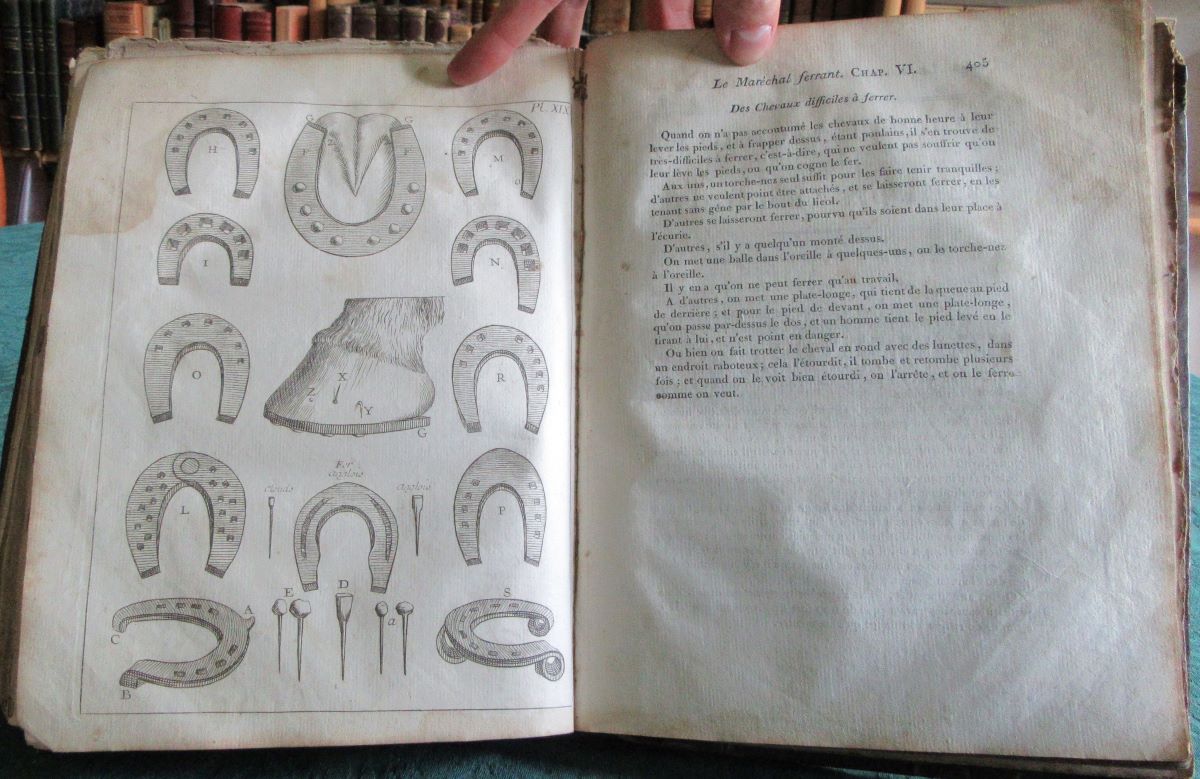 PL. XIX
G G
H
F F
2
M
I
N
O
X
Z
Y
R
G
Fer
Anglois
Clouds
Anglois
L
P
E
D
S
A
a
C
B
Le Maréchal ferrant. CHAP. VI. 405
Des Chevaux difficiles à ferrer.
Quand on n'a pas accoutumé les chevaux de bonne heure à leur
lever les pieds, et à frapper dessus, étant poulains, il s'en trouve de
très-difficiles à ferrer, c'est-à-dire, qui ne veulent pas souffrir qu'on
leur lève les pieds, ou qu'on cogne le fer.
Aux uns, un torche-nez seul suffit pour les faire tenir tranquilles ;
d'autres ne veulent point être attachés, et se laisseront ferrer, en les
tenant sans gêne par le bout du licol.
D'autres se laisseront ferrer, pourvu qu'ils soient dans leur place à
l'écurie.
D'autres, s'il y a quelqu'un monté dessus.
On met une balle dans l'oreille à quelques-uns, ou le torche-nez
à l'oreille.
Il y en a qu'on ne peut ferrer qu'au travail.
A d'autres, on met une plate-longe, qui tient de la queue au pied
de derrière ; et pour le pied de devant, on met une plate-longe,
qu'on passe par-dessus le dos, et un homme tient le pied levé en le
tirant à lui, et n'est point en danger.
Ou bien on fait trotter le cheval en rond avec des lunettes, dans
un endroit raboteux ; cela l'étourdit, il tombe et retombe plusieurs
fois ; et quand on le voit bien étourdi, on l'arrête, et on le ferre
comme on veut.